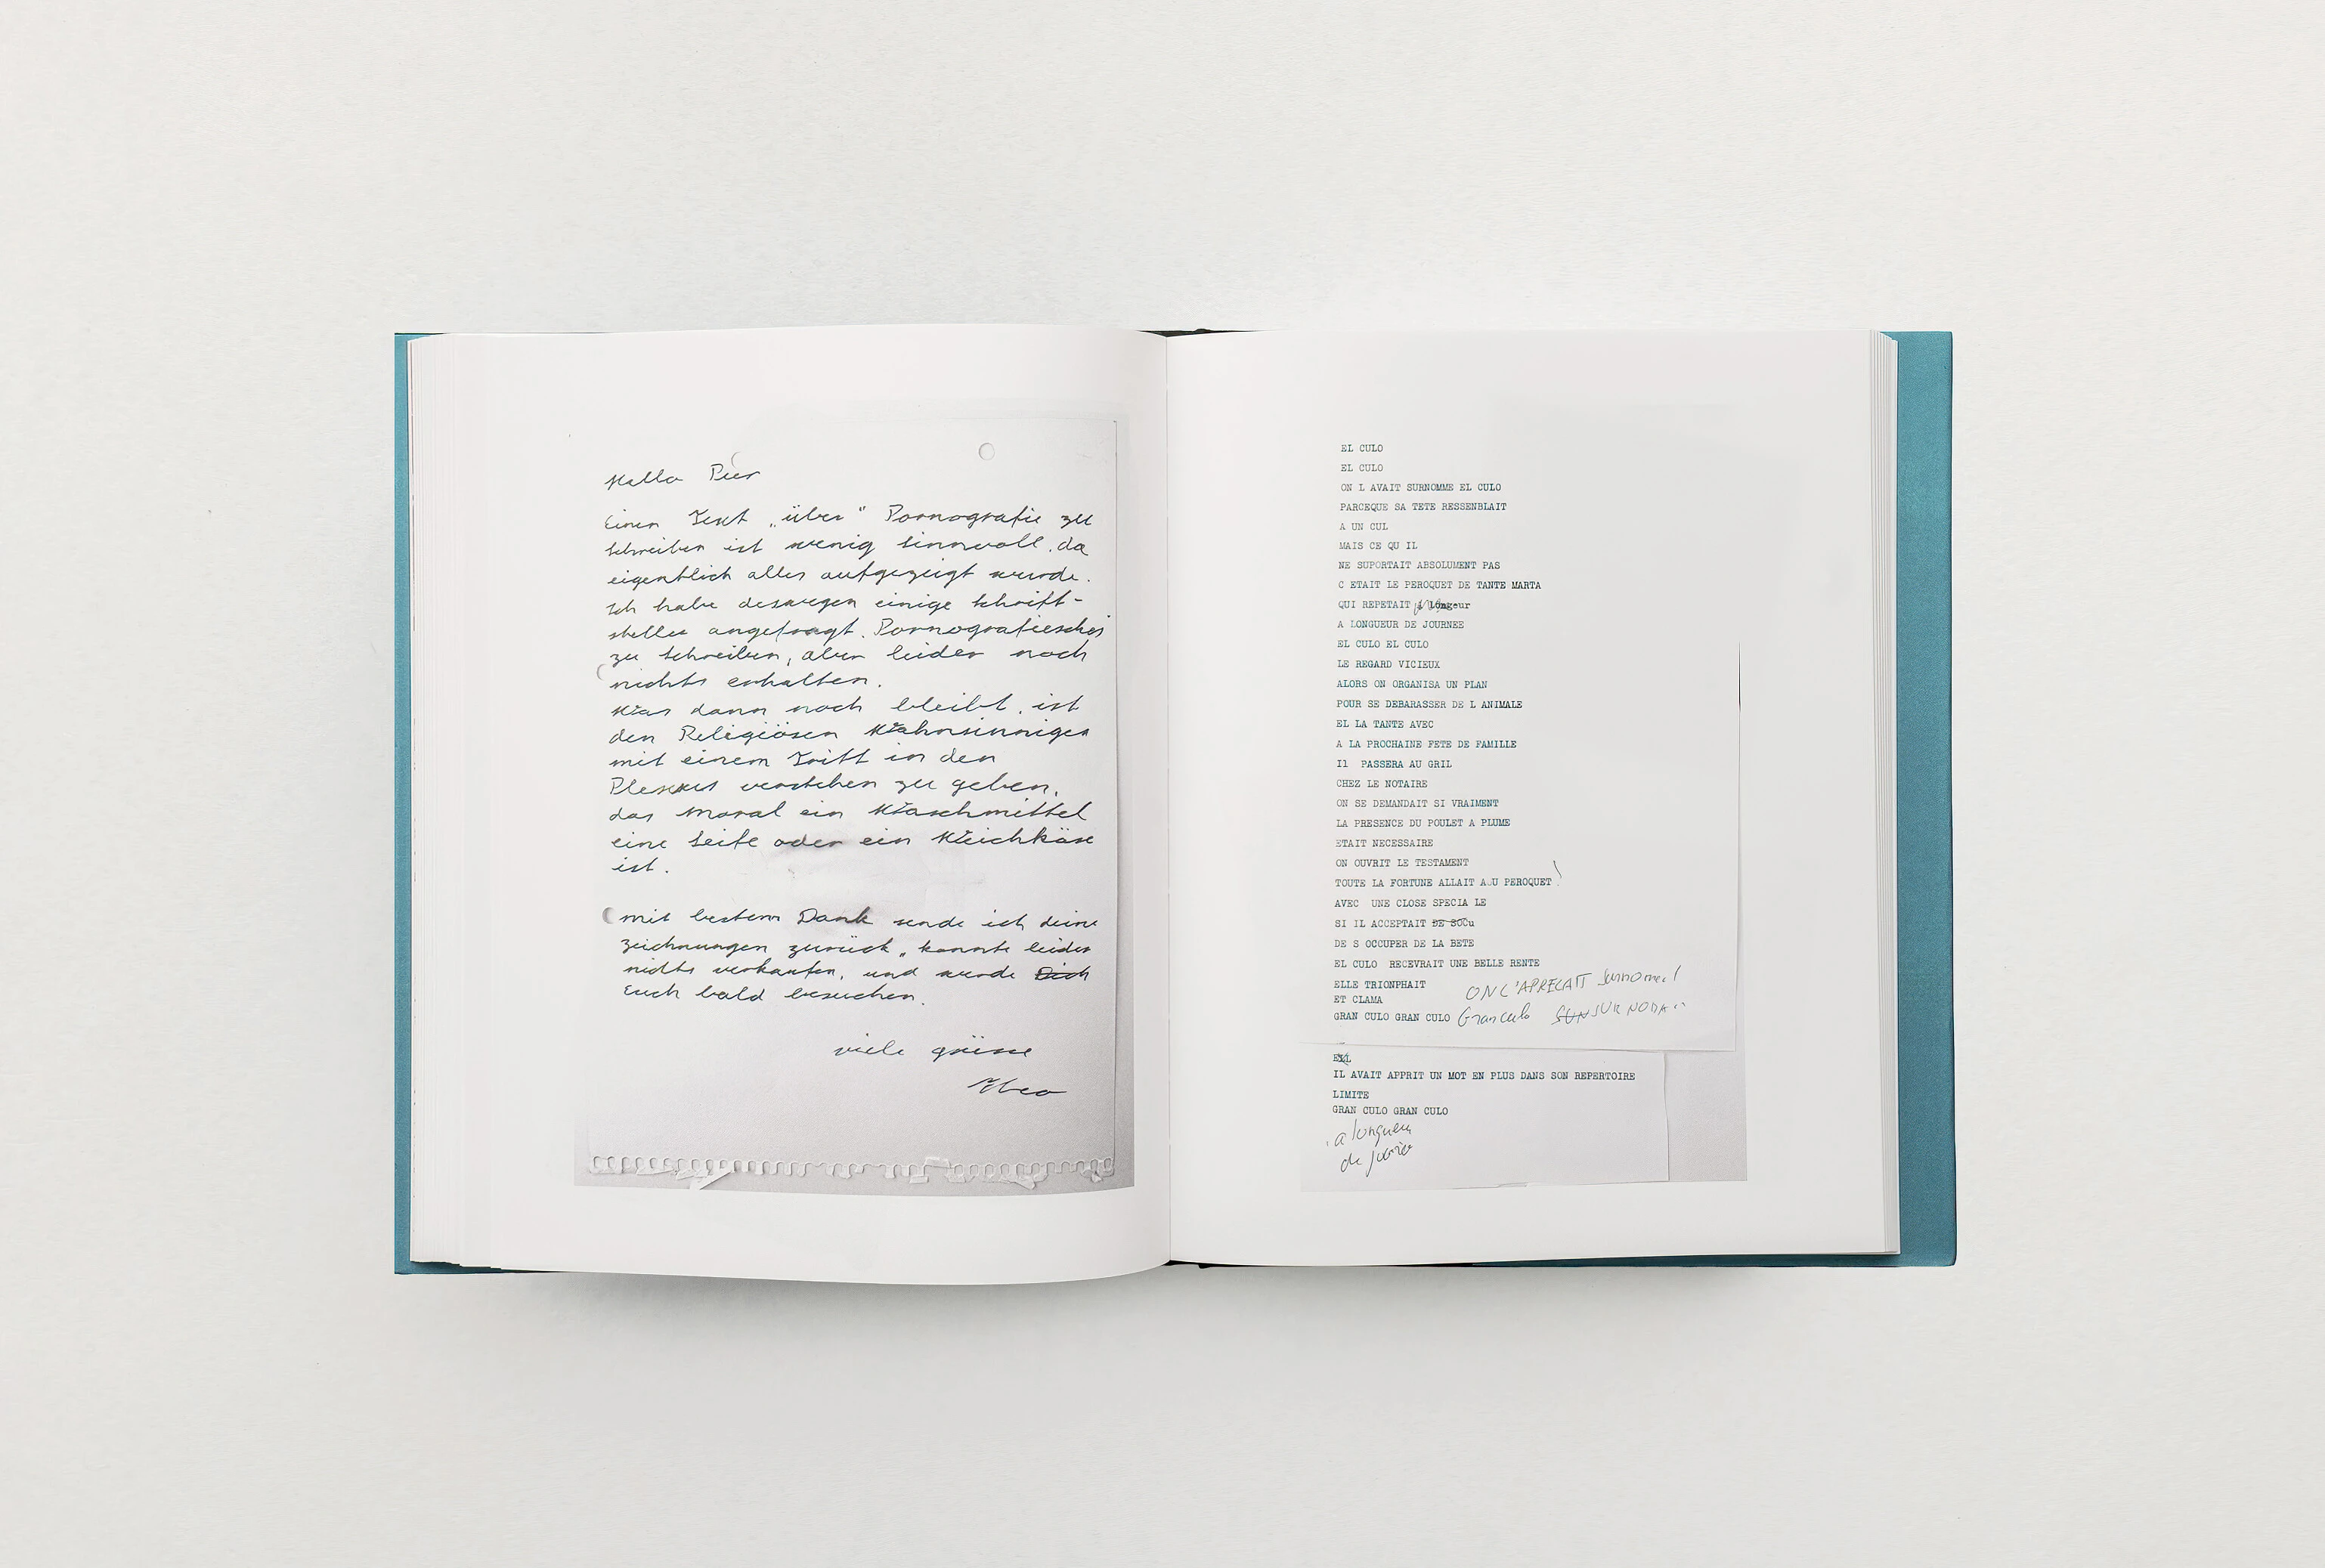 Hallo Pier
Einen Text „über" Pornografie zu
schreiben ist wenig sinnvoll, da
eigentlich alles aufgezeigt wurde.
Ich habe deswegen einige Schrift-
steller angefragt, Pornografisches
zu schreiben, aber leider noch
nichts erhalten.
Was dann noch bleibt, ist
den Religiösen Wahnsinnigen
mit einem Tritt in den
Plexus verstehen zu geben,
das Moral ein Waschmittel
eine Seife oder ein Weichkäse
ist.
mit bestem Dank sende ich deine
Zeichnungen zurück, konnte leider
nichts verkaufen, und werde Dich
Euch bald besuchen.
viele grüsse
EL CULO
EL CULO
ON L AVAIT SURNOMME EL CULO
PARCEQUE SA TETE RESSENBLAIT
A UN CUL
MAIS CE QU IL
NE SUPORTAIT ABSOLUMENT PAS
C ETAIT LE PEROQUET DE TANTE MARTA
QUI REPETAIT Longeur
A LONGUEUR DE JOURNEE
EL CULO EL CULO
LE REGARD VICIEUX
ALORS ON ORGANISA UN PLAN
POUR SE DEBARASSER DE L ANIMALE
EL LA TANTE AVEC
A LA PROCHAINE FETE DE FAMILLE
Il PASSERA AU GRIL
CHEZ LE NOTAIRE
ON SE DEMANDAIT SI VRAIMENT
LA PRESENCE DU POULET A PLUME
ETAIT NECESSAIRE
ON OUVRIT LE TESTAMENT
TOUTE LA FORTUNE ALLAIT AU PEROQUET
AVEC UNE CLOSE SPECIA LE
SI IL ACCEPTAIT DE SOCu
DE S OCCUPER DE LA BETE
EL CULO RECEVRAIT UNE BELLE RENTE
ELLE TRIONPHAIT
ET CLAMA
ON L'APRECAIT
GRAN CULO GRAN CULO Gran culo
IL AVAIT APPRIT UN MOT EN PLUS DANS SON REPERTOIRE
LIMITE
GRAN CULO GRAN CULO
a longueur
de